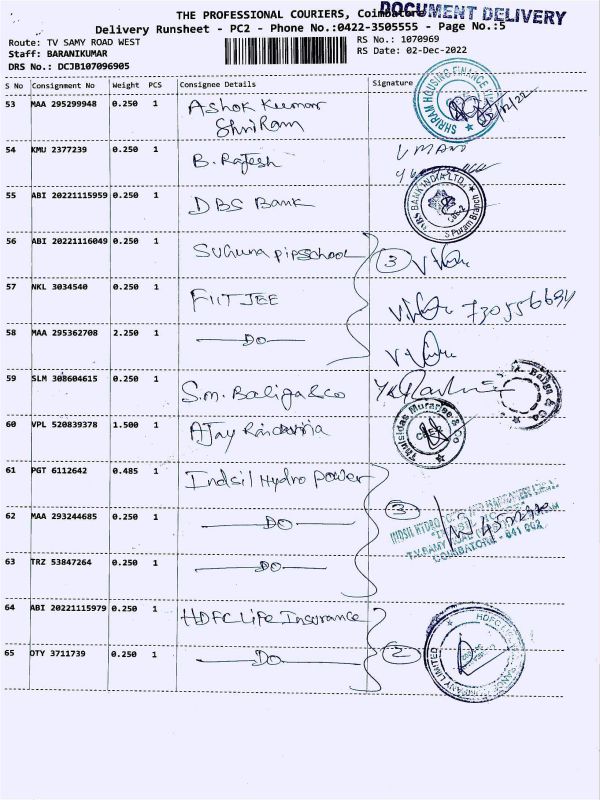 THE PROFESSIONAL COURIERS, Coimbatore
DOCUMENT DELIVERY
Delivery Runsheet - PC2 - Phone No.:0422-3505555 - Page No.:5
Route: TV SAMY ROAD WEST
RS No.: 1070969
Staff: BARANIKUMAR
RS Date: 02-Dec-2022
DRS No.: DCJB107096905
S No Consignment No Weight PCS Consignee Details Signature
53 MAA 295299948 0.250 1 Ashok Kumar
Shriram
SHRIRAM HOUSING FINANCE
54 KMU 2377239 0.250 1 B. Rajesh
55 ABI 20221115959 0.250 1 DBS Bank
DBS BANK INDIA LTD.
56 ABI 20221116049 0.250 1 Suguna pip school 3
57 NKL 3034540 0.250 1 FIITJEE
58 MAA 295362708 2.250 1 DO
59 SLM 308604615 0.250 1 S.m. Baliga & co
60 VPL 520839378 1.500 1 AJay
Thulsidas Murarjee & Co
61 PGT 6112642 0.485 1 Indsil Hydro power
62 MAA 293244685 0.250 1 DO 3
COIMBATORE - 641 002
63 TRZ 53847264 0.250 1 DO
64 ABI 20221115979 0.250 1 HDFC Life Insurance
65 OTY 3711739 0.250 1 DO 2